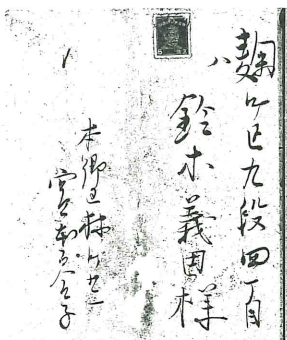 麹町区九段四丁目
八
鈴木義男様
本郷区林町廿一
宮本百合子